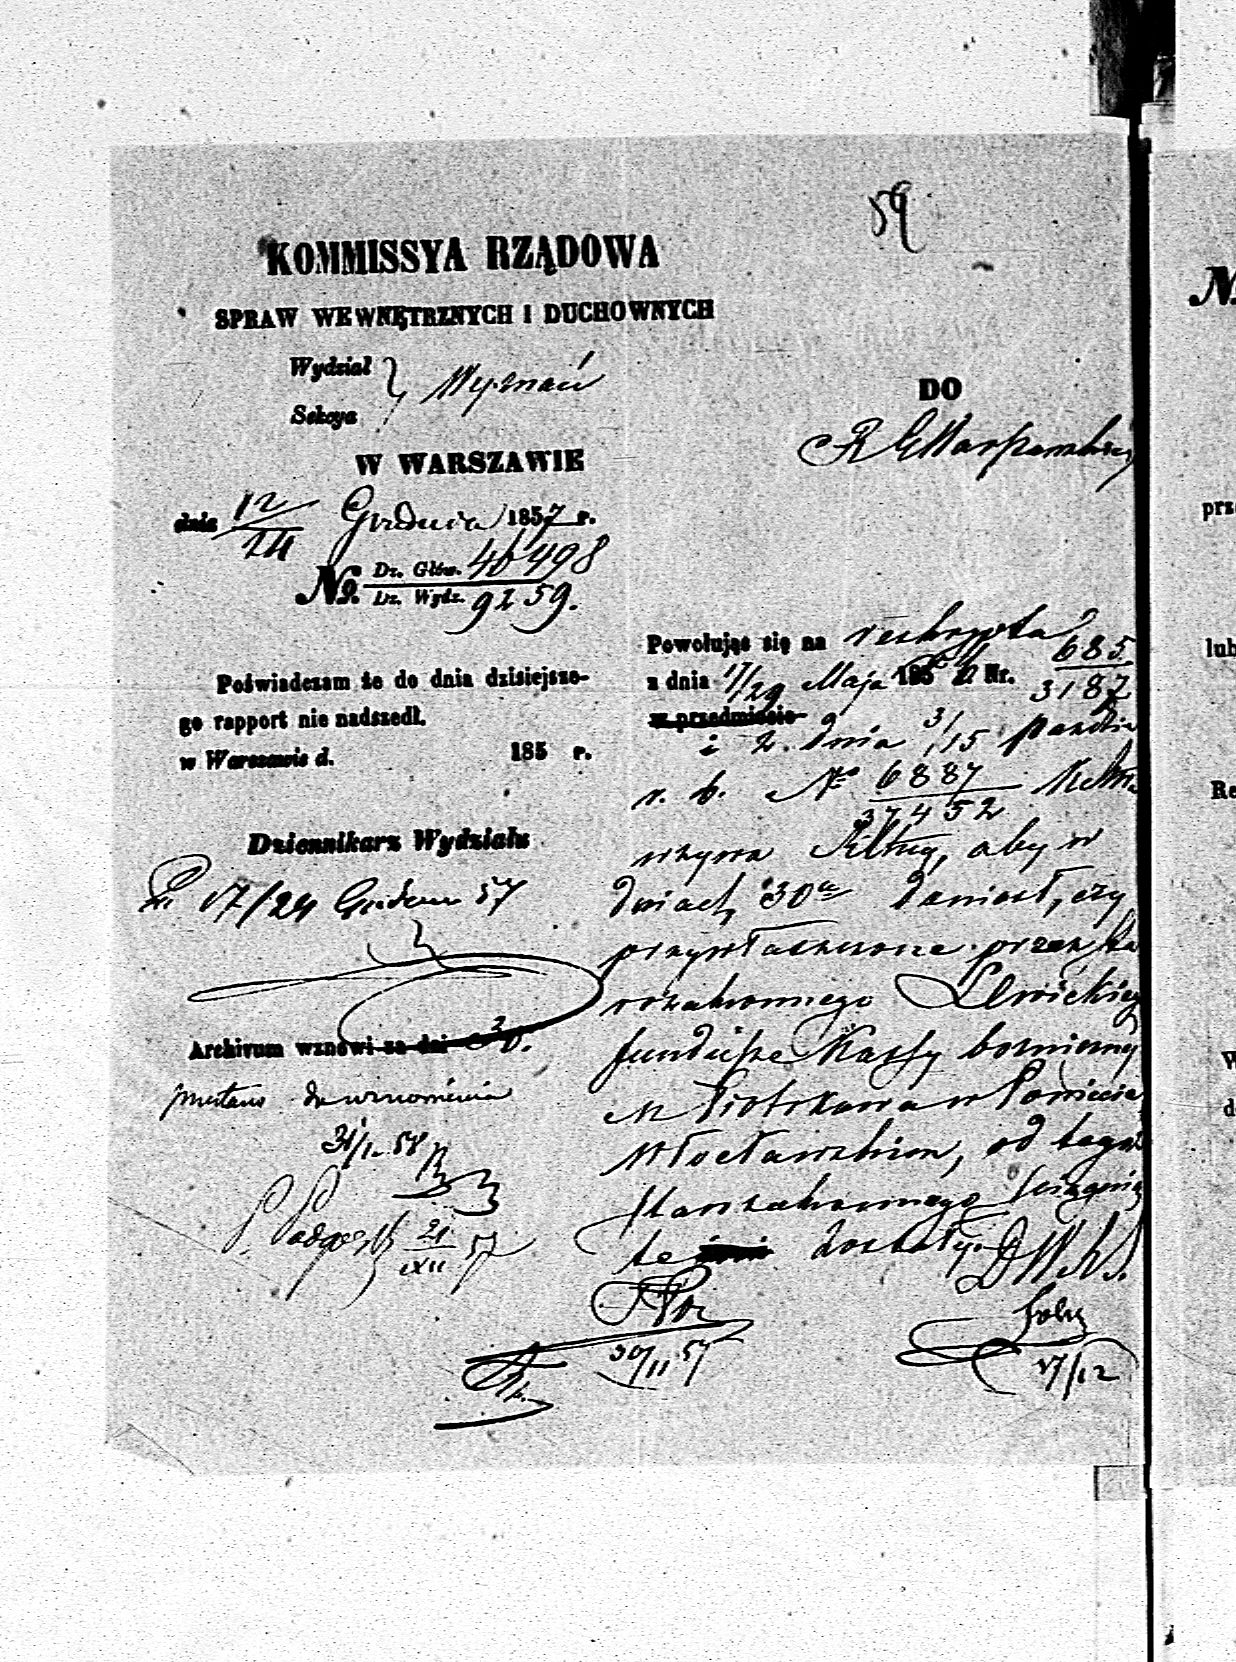 59
KOMMISSYA RZĄDOWA
SPRAW WEWNĘTRZNYCH I DUCHOWNYCH
Wydział
Sekcya
Wyznań
W WARSZAWIE
dnia 12/24 Grudnia 1857 r.
No. Dz. Głów. 46498
Dz. Wydz. 9259.
Poświadczam że do dnia dzisiejsze-
go rapport nie nadszedł.
w Warszawie d. 185 r.
Dziennikarz Wydziału
17/24 Grudnia 57
Archivum wznowi za dni 30.
do wznowienia
31/1 58
21/XII 57
DO
R G Warszawskiej
Powołując się na reskrypta
z dnia 17/29 Maja 185 Nr. 685
3187
w przedmiocie
i z dnia 3/15 Paźdz
r. b. No 6887
37452
wzywa aby w
dniach 30tu doniosł, czy
przywłaszczone przez Sta
rozakonnego Lewickiego
fundusze Kassy bożniczney
w Piotrkowa w Powiecie
Włocławskim, od tegoż
Starozakonnego ściągnię
te zostały.
30/11 57
17/12